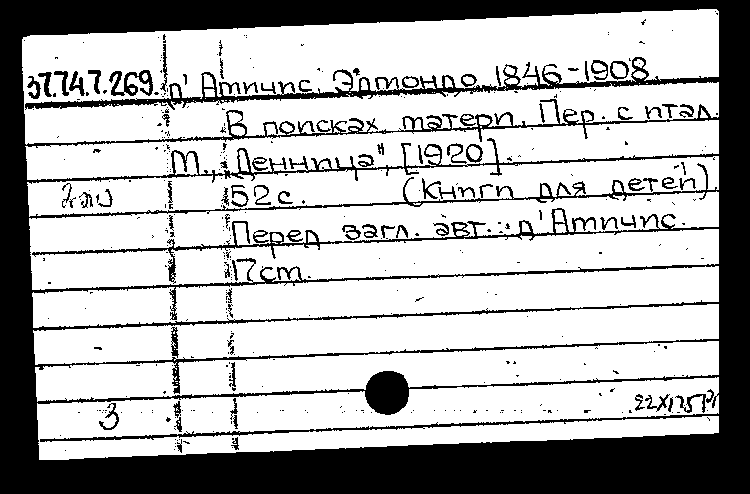 37.74.7.269. д' Амичис, Эдмондо 1846-1908.
В поисках матери. Пер. с итал.
М., „Денница", [1920].
52с. (Книги для детей)
Перед загл. авт.: д'Амичис.
17см.
3